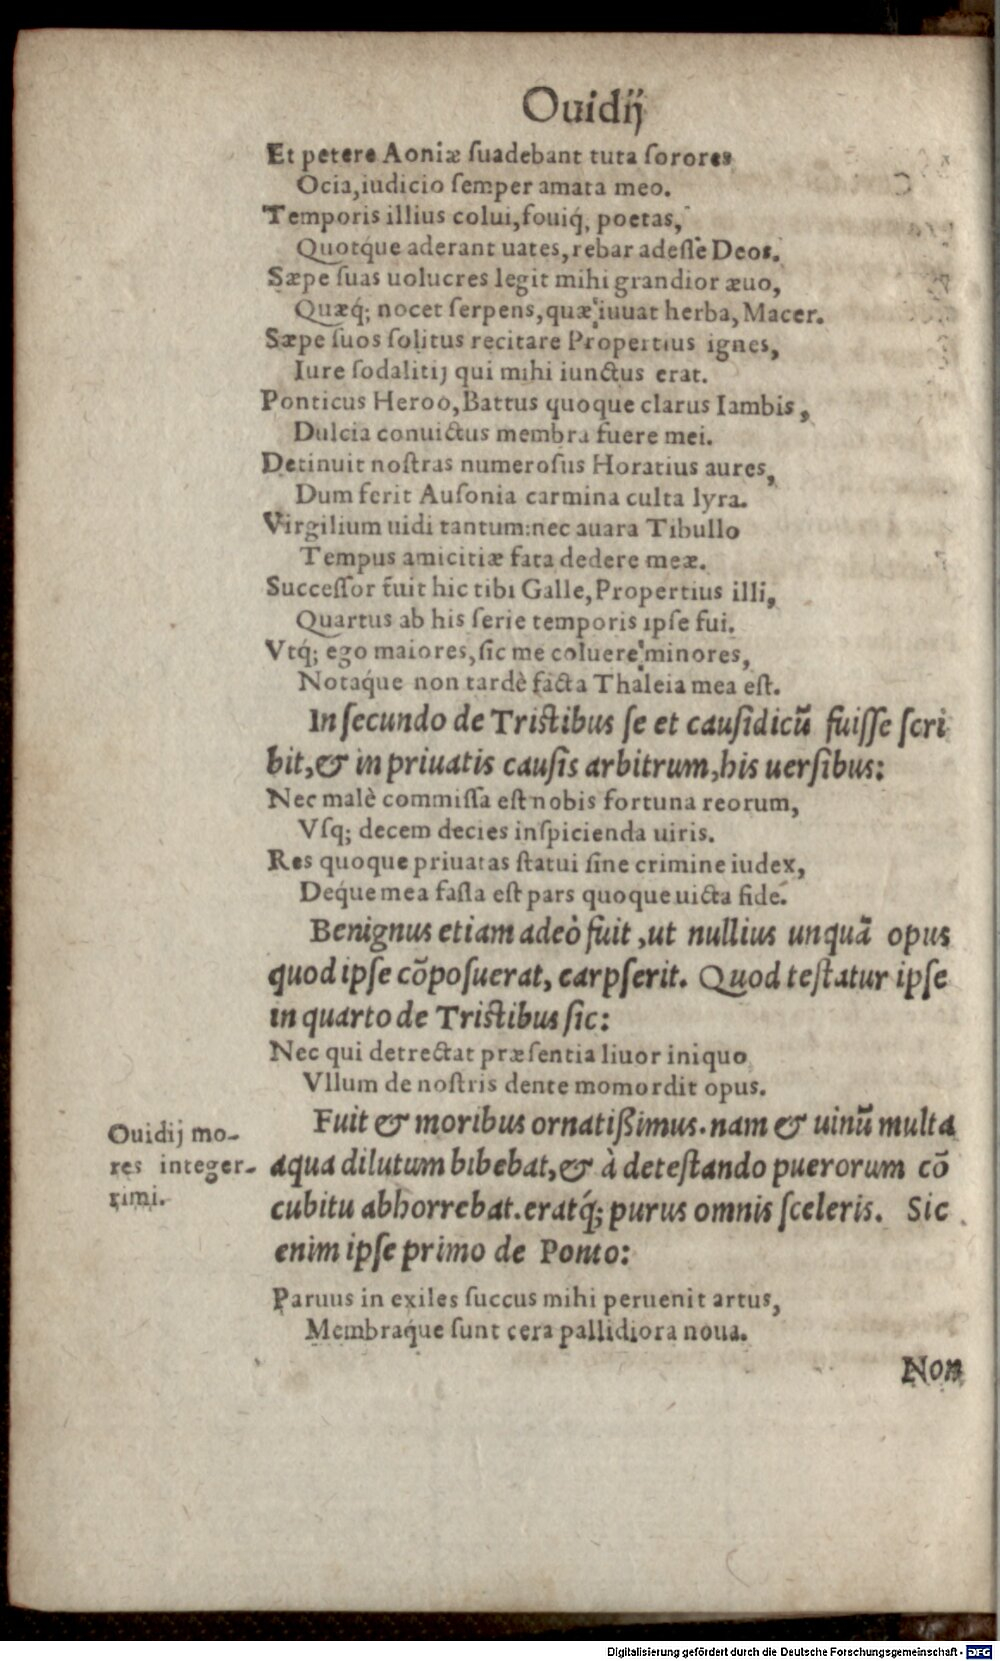 Ouidij
Et petere Aoniæ ſuadebant tuta ſorores
Ocia, iudicio ſemper amata meo.
Temporis illius colui, fouiq́, poetas,
Quotq́ue aderant uates, rebar adeſſe Deos.
Sæpe ſuas uolucres legit mihi grandior æuo,
Quæq́; nocet ſerpens, quæ iuuat herba, Macer.
Sæpe ſuos ſolitus recitare Propertius ignes,
Iure ſodalitij qui mihi iunctus erat.
Ponticus Heroo, Battus quoque clarus Iambis,
Dulcia conuictus membra fuere mei.
Detinuit noſtras numeroſus Horatius aures,
Dum ferit Auſonia carmina culta lyra.
Virgilium uidi tantum: nec auara Tibullo
Tempus amicitiæ fata dedere meæ.
Succeſſor fuit hic tibi Galle, Propertius illi,
Quartus ab his ſerie temporis ipſe fui.
Vtq́; ego maiores, ſic me coluere minores,
Notaq́ue non tardè facta Thaleia mea eſt.
In ſecundo de Triſtibus ſe et cauſidicū fuiſſe ſcri
bit, & in priuatis cauſis arbitrum, his uerſibus:
Nec malè commiſſa eſt nobis fortuna reorum,
Vſq; decem decies inſpicienda uiris.
Res quoque priuatas ſtatui ſine crimine iudex,
Deq́ue mea faſſa eſt pars quoque uicta fide.
Benignus etiam adeò fuit, ut nullius unquā opus
quod ipſe cōpoſuerat, carpſerit. Quod teſtatur ipſe
in quarto de Triſtibus ſic:
Nec qui detrectat præſentia liuor iniquo
Vllum de noſtris dente momordit opus.
Fuit & moribus ornatiſsimus. nam & uinū multa
Ouidij mo-
res integer-
rimi.
aqua dilutum bibebat, & à deteſtando puerorum cō
cubitu abhorrebat. eratq́; purus omnis ſceleris. Sic
enim ipſe primo de Ponto:
Paruus in exiles ſuccus mihi peruenit artus,
Membraq́ue ſunt cera pallidiora noua.
Non
Digitalisierung gefördert durch die Deutsche Forschungsgemeinschaft - DFG